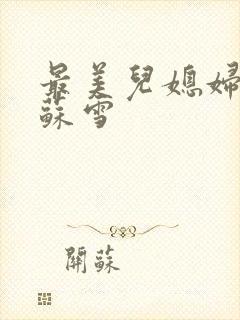 最美兒媳婦
蘇雪
關蘇